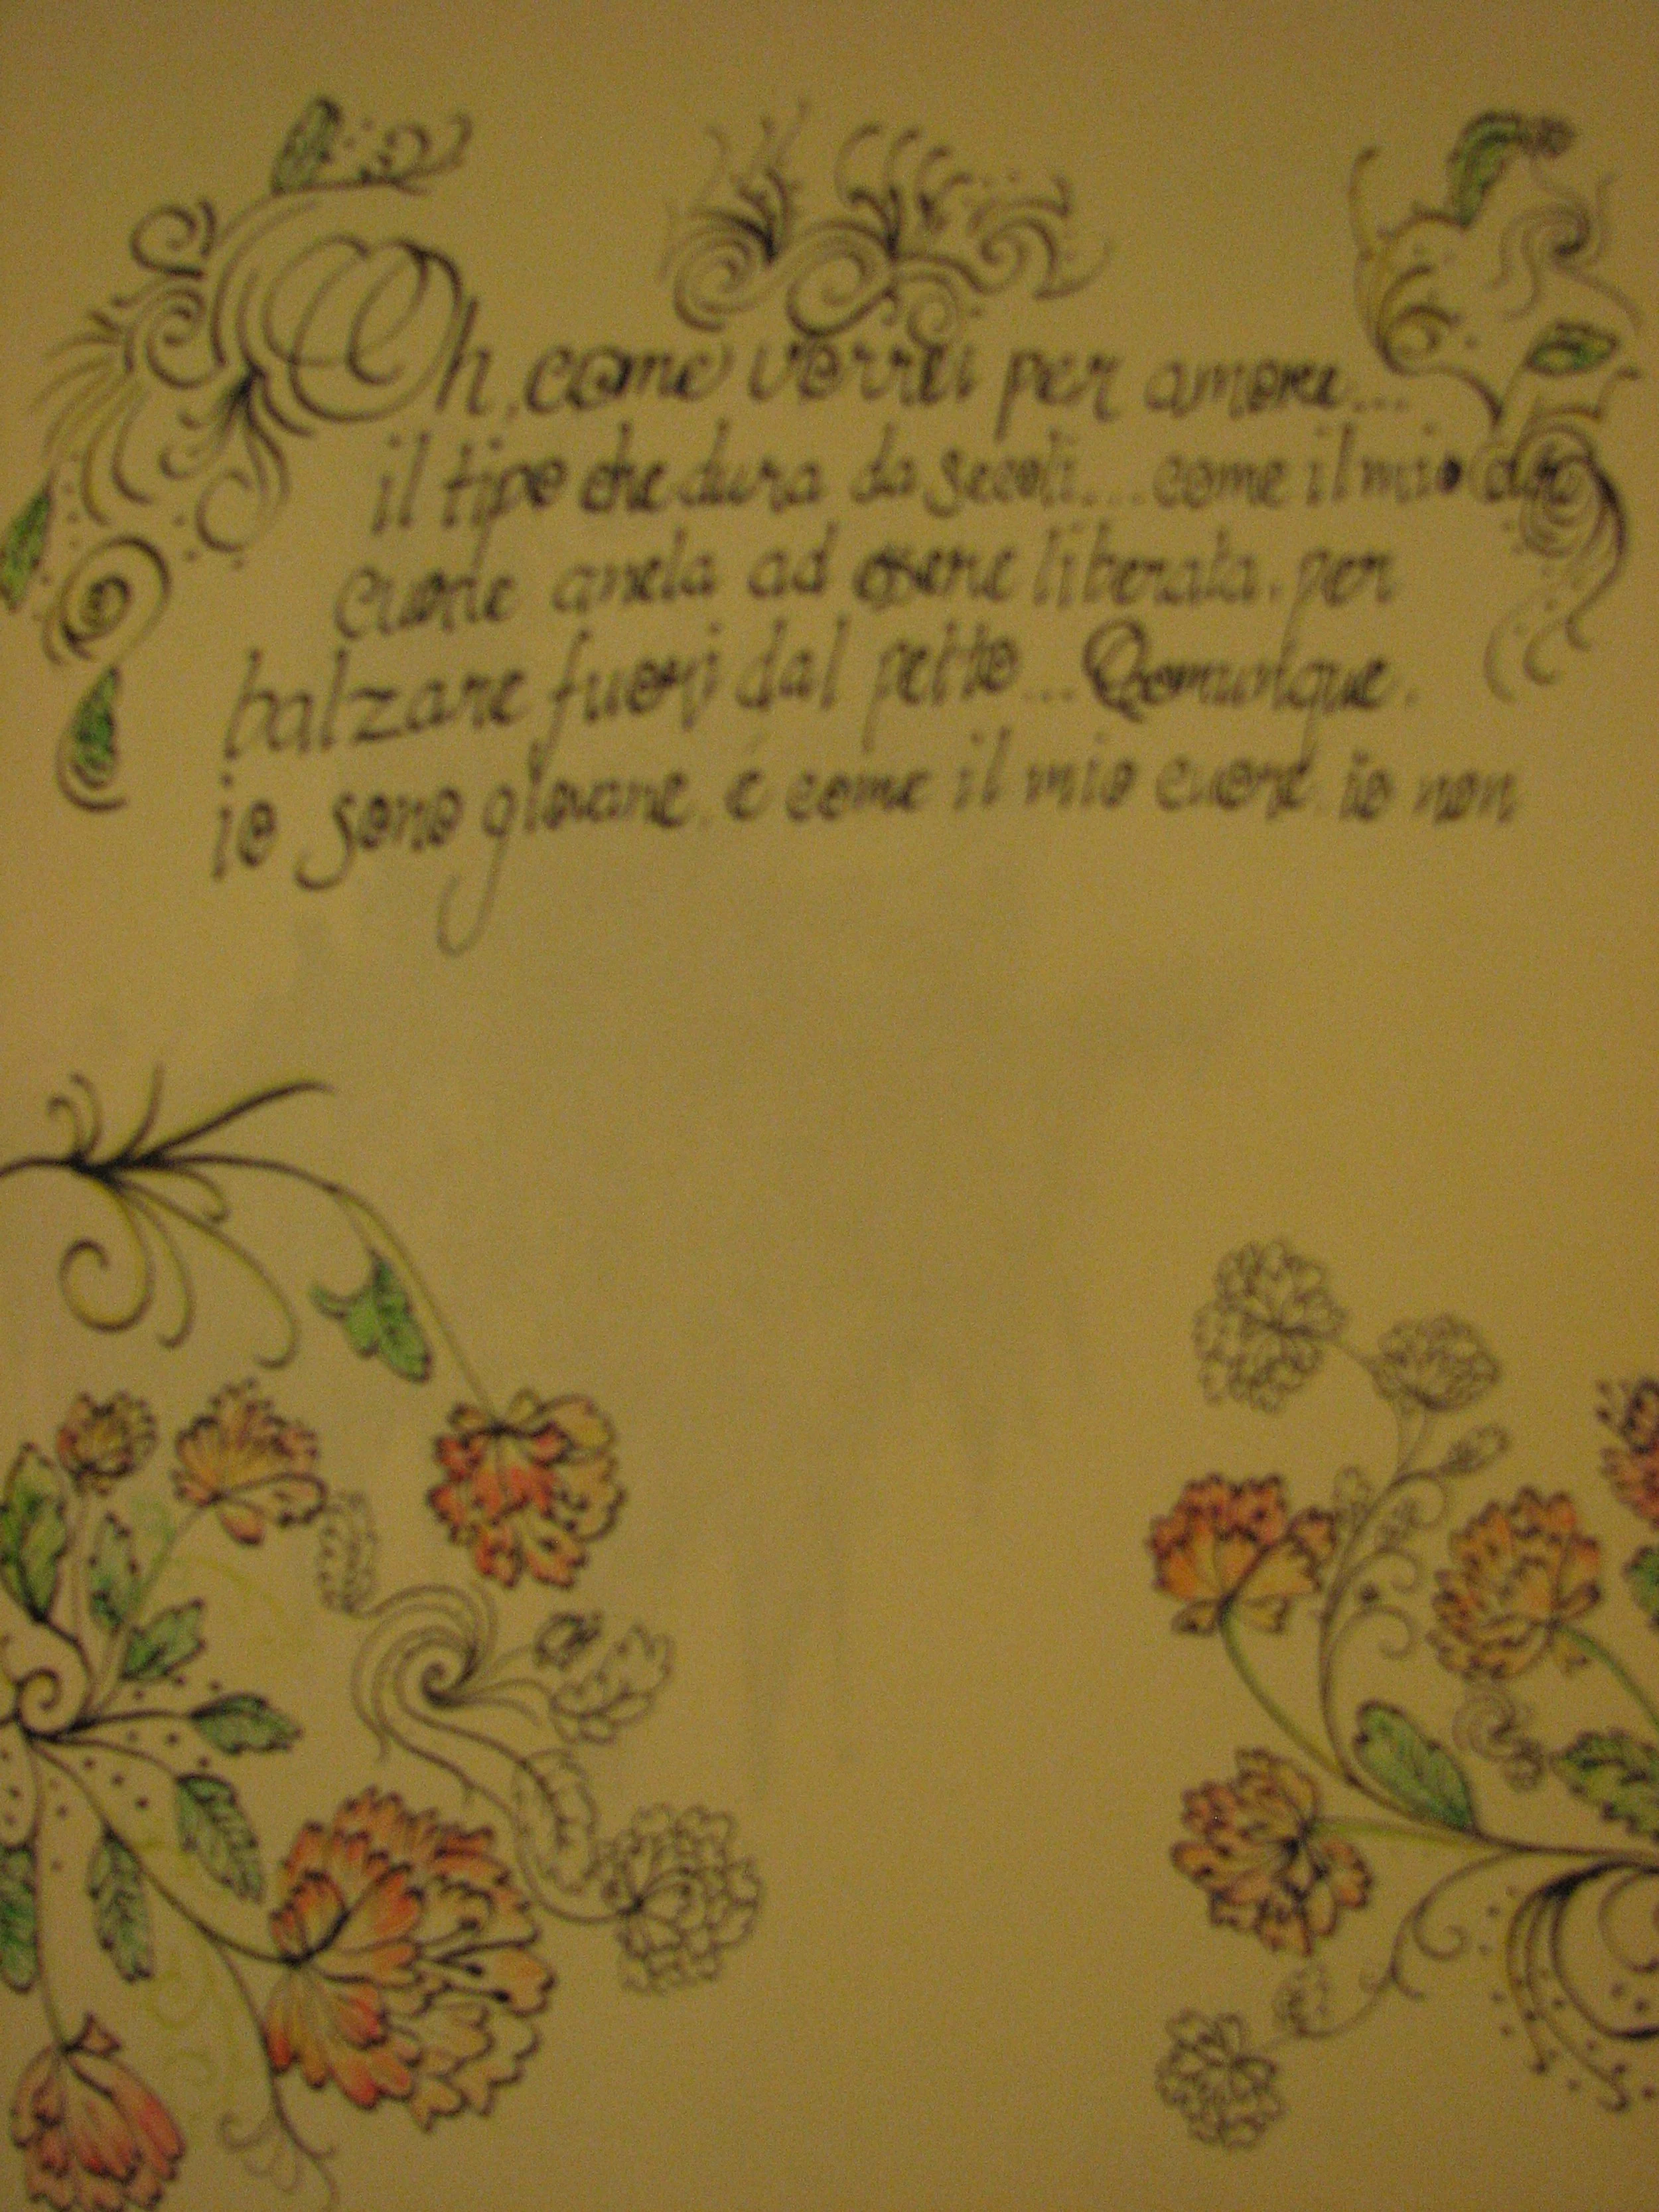 Oh, come vorrei per amore...
il tipo che dura da secoli... come il mio
cuore anela ad essere liberata, per
balzare fuori dal petto... Qomunque,
io sono giovane, é come il mio cuore, io non